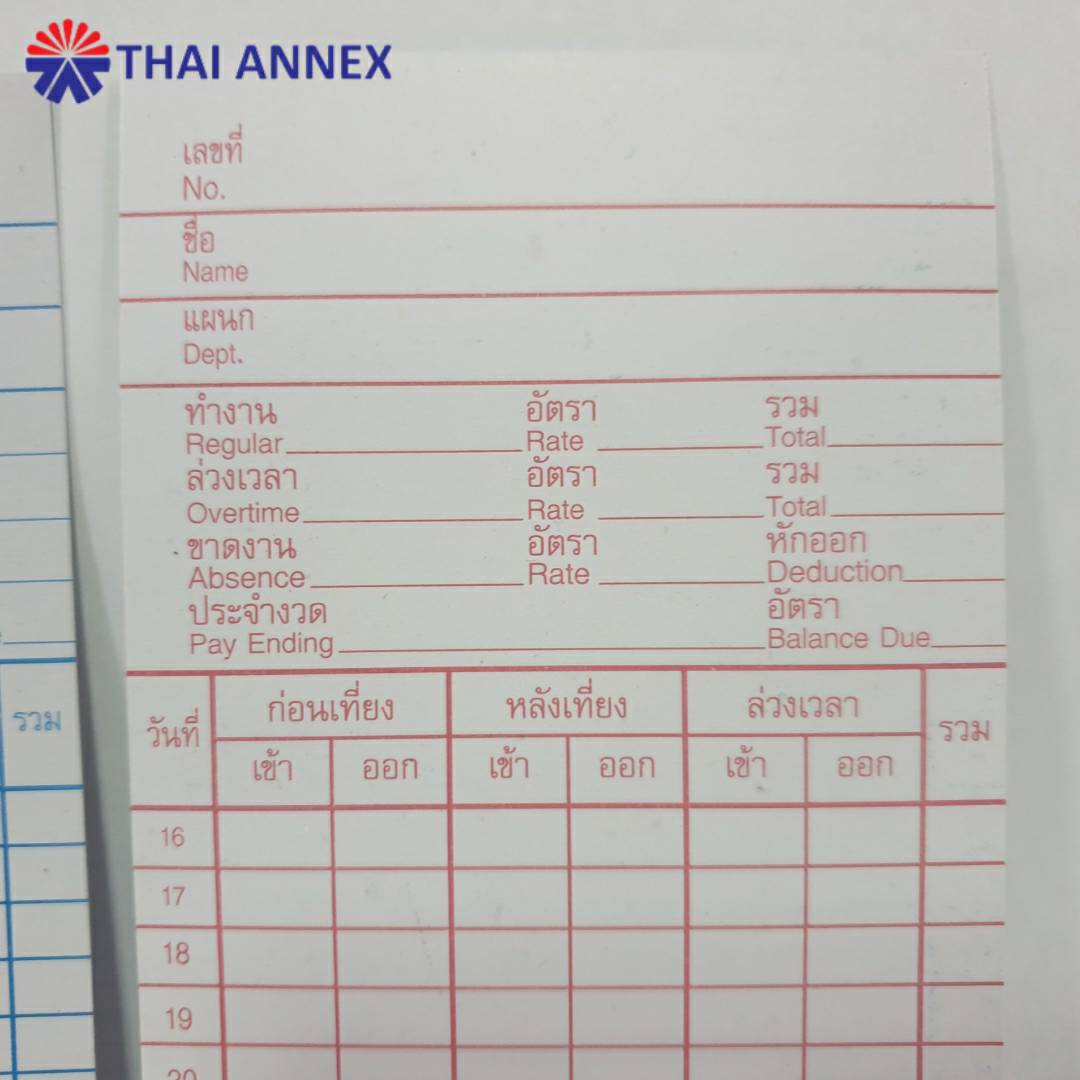 THAI ANNEX
เลขที่
No.
ชื่อ
Name
แผนก
Dept.
ทำงาน อัตรา รวม
Regular Rate Total
ล่วงเวลา อัตรา รวม
Overtime Rate Total
ขาดงาน อัตรา หักออก
Absence Rate Deduction
ประจำงวด อัตรา
Pay Ending Balance Due
วันที่ ก่อนเที่ยง หลังเที่ยง ล่วงเวลา รวม
เข้า ออก เข้า ออก เข้า ออก
16
17
18
19
20
รวม